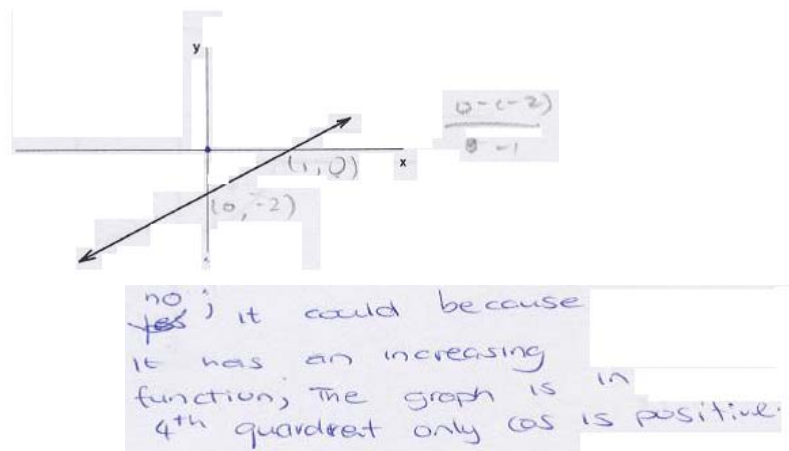 y
0-(-2)
-1
x
(1,0)
(0,-2)
no; it could because
it has an increasing
function; The graph is in
4th quardreat only cos is positive.